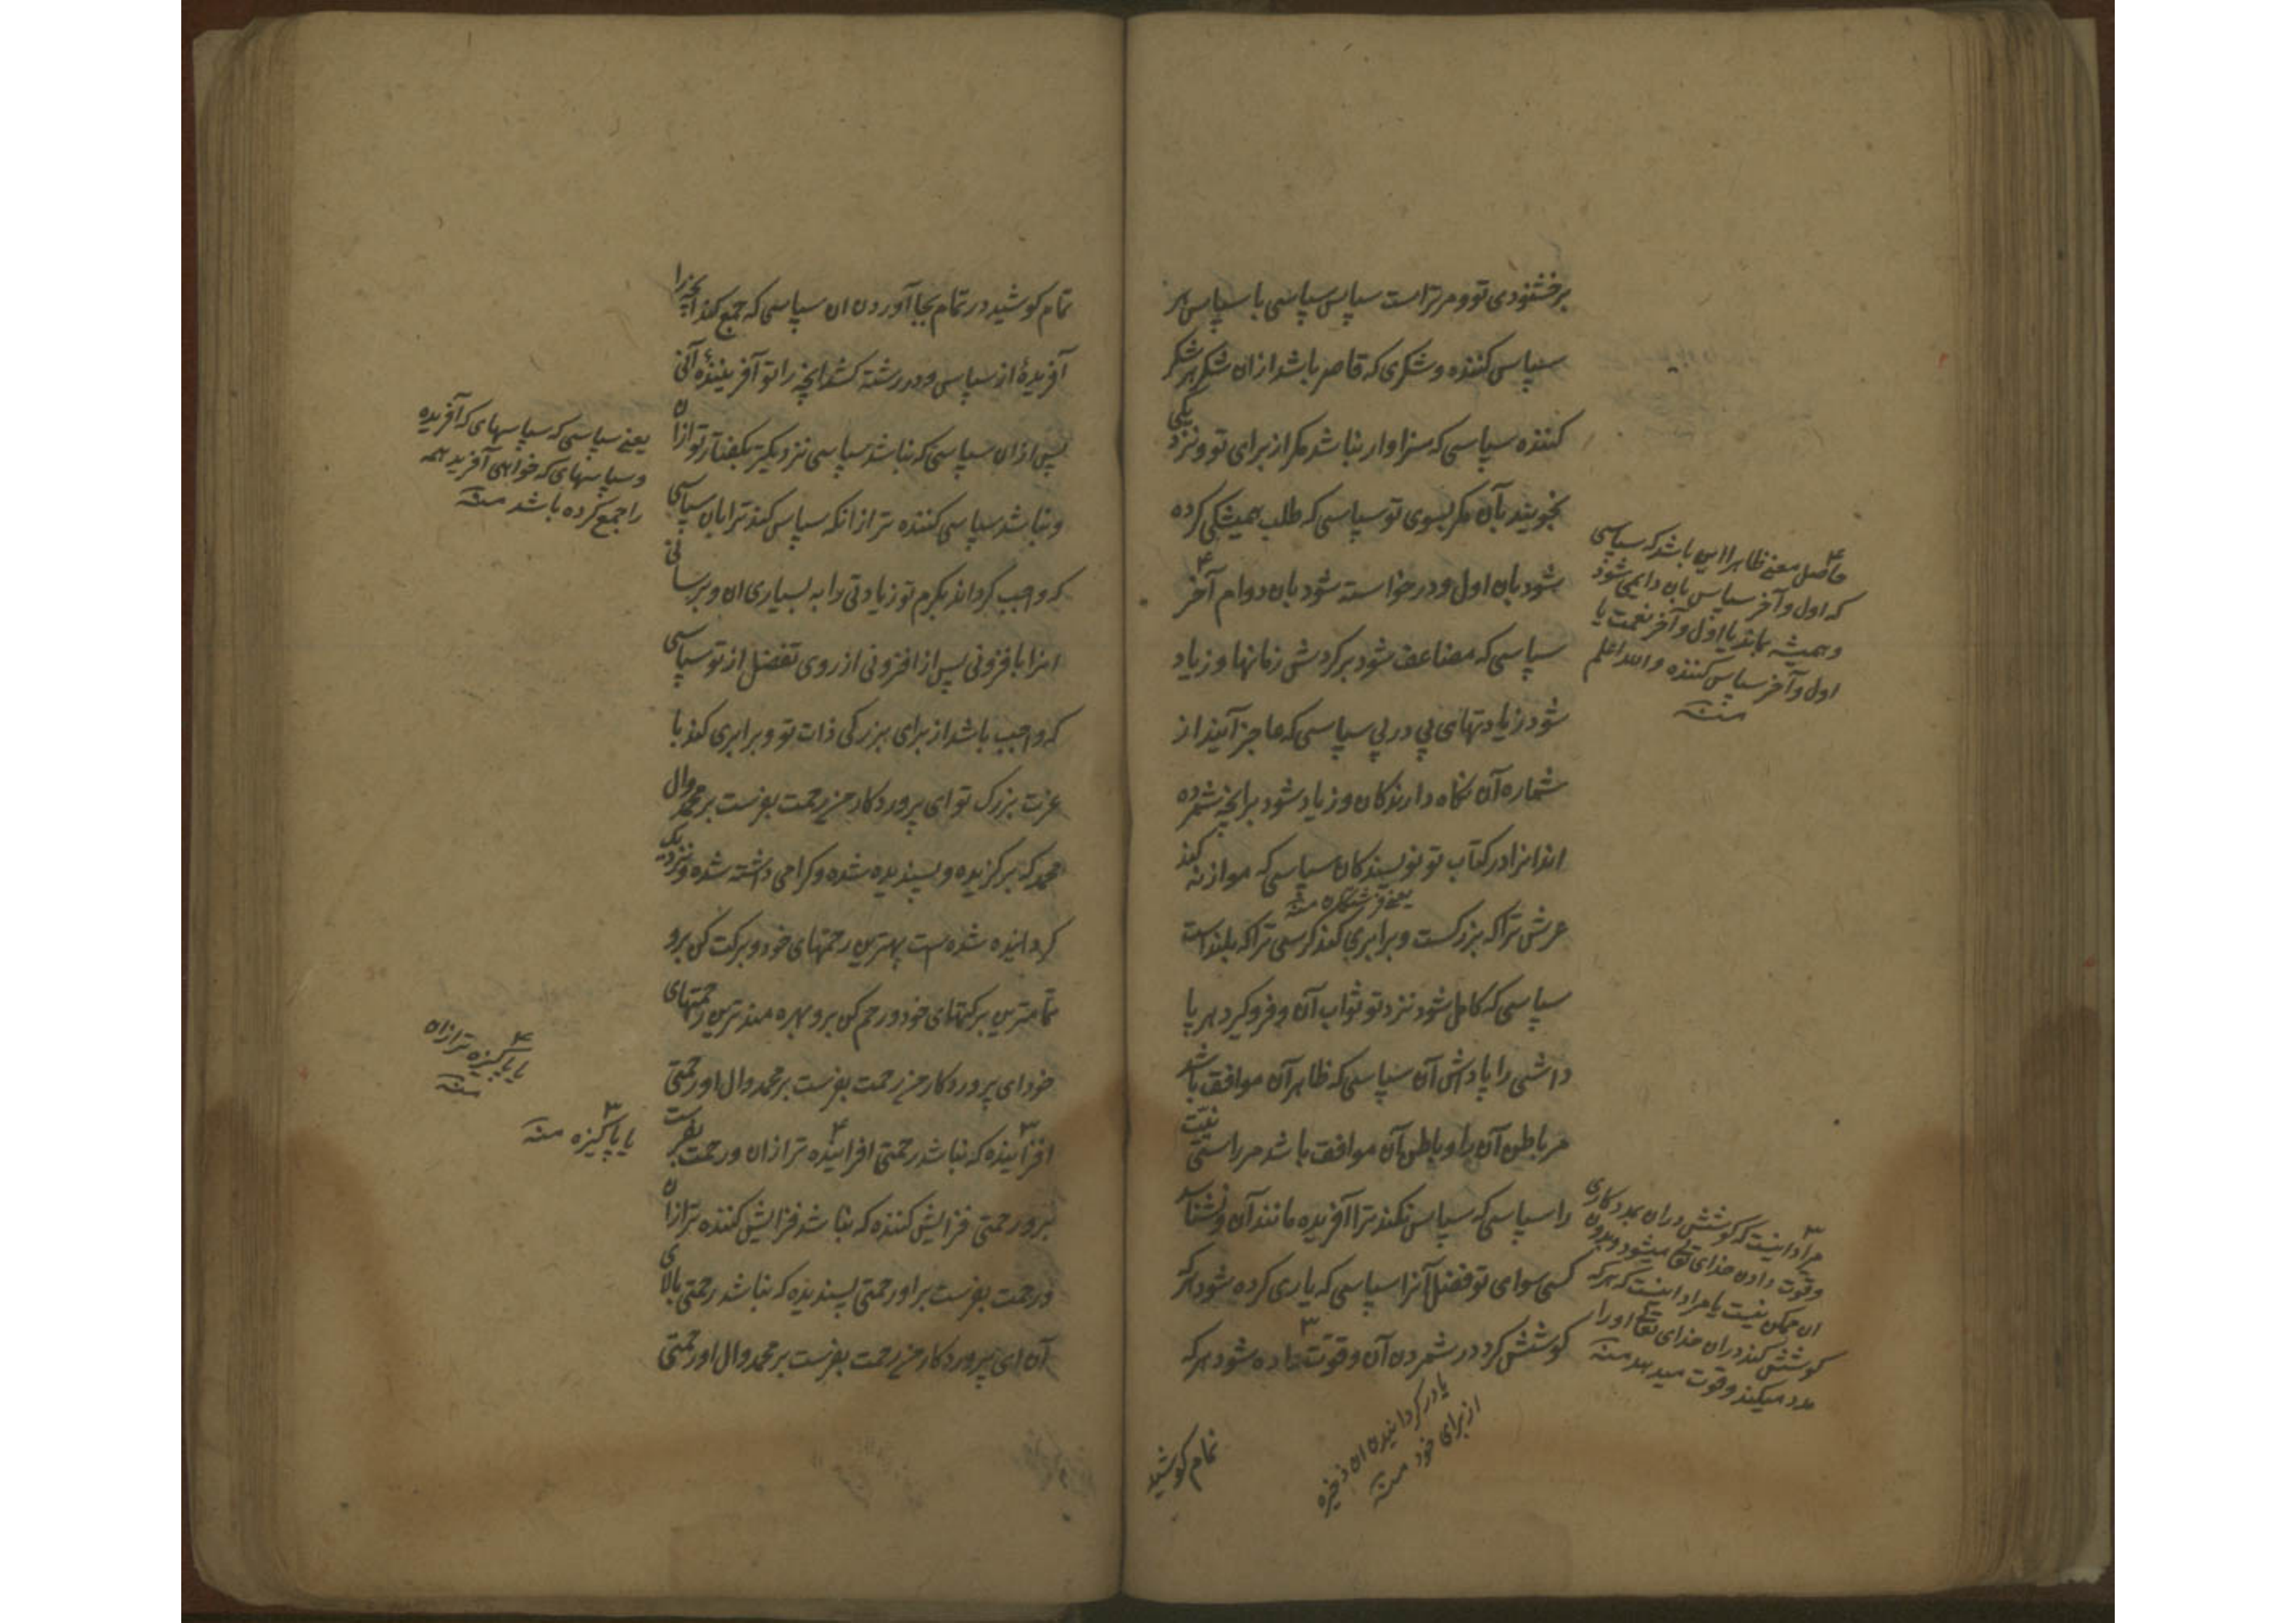 برخشنودی تو و مر تراست سپاس سپاسی با سپاس هر
سپاس کننده و شکری که قاصر باشد ازان شکر هر شکر
کننده سپاسی که سزاوار نباشد مکر از برای تو و نزدیکی
نجویند بآن مکر بسوی تو سپاسی که طلب همیشکی کرده
شود بان اول و درخواسته شود بان دوام آخر
سپاسی که مضاعف شود بر کردش زمانها و زیاد
شود زیادتهای پی در پی سپاسی که عاجز آیند از
شماره آن نکاه دارندکان و زیاد شود بر انچه شمرده
اند انرا در کتاب تو نویسندکان سپاسی که موازنه کند
یعنے فرشتکان منه
عرش ترا که بزرکست و برابری کند کرسی ترا که بلند است
سپاسی که کامل شود نزد تو ثواب آن و فرو کیرد هر پا
داشی را پاداش آن سپاسی که ظاهر آن موافق باشد
مر باطن آن را و باطن آن موافق باشد مر راستی نیت
را سپاسی که سپاس نکند ترا آفریده مانند آن و نشناسد
کسی سوای تو فضل آنرا سپاسی که یاری کرده شود هر که
کوشش کرد در شمردن آن و قوت داده شود هر که
تمام کوشید
حاصل معنے ظاهرا این باشد که سپاسی
که اول و آخر سپاس بان دایمی شود
و همیشه بماند یا اول و آخر نعمت یا
اول و آخر سپاس کننده و الله اعلم
منه
مراد اینست که کوشش دران بمددکاری
و قوت دادن خدای تعا میشود و بدون
ان ممکن نیست یا مراد اینست که هر که
کوشش کند دران خدای تعا او را
مدد میکند و قوت میدهد منه
یا در کردانیدن ان ذخیره
از برای خود منه
تمام کوشید در تمام بجا آوردن ان سپاسی که جمع کند انچه را
آفریدهٔ از سپاس و در رشته کشد انچه را تو آفرینندهٔ آنی
پس ازان سپاسی که نباشد سپاسی نزدیکتر بکفتار تو ازان
و نباشد سپاسی کننده تر از انکه سپاس کند ترا بان سپاسی
که واجب کرداند بکرم تو زیادتی را به بسیاری ان و برسانی
انرا بافزونی پس از افزونی از روی تفضل از تو سپاسی
که واجب باشد از برای بزرکی ذات تو و برابری کند با
عزت بزرک تو ای پروردکار من رحمت بفرست بر محمد وال
محمد که برکزیده و پسندیده شده و کرامی داشته شده و نزدیک
کردانیده شده است بهترین رحمتهای خود و برکت کن برو
تمامترین برکتهای خود و رحم کن برو بهره مند ترین رحمتهای
خود ای پروردکار من رحمت بفرست بر محمد وال او رحمتی
افزاینده که نباشد رحمتی افزاینده تر ازان و رحمت بفرست
برو رحمتی فزایش کننده که نباشد فزایش کننده تر ازان
و رحمت بفرست بر او رحمتی پسندیده که نباشد رحمتی بالای
آن ای پروردکار من رحمت بفرست بر محمد وال او رحمتی
یعنے سپاسی که سپاسهای که آفریده
و سپاسهای که خواهی آفرید همه
را جمع کرده باشد منه
یا پاکیزه تر ازان
منه
یا پاکیزه منه